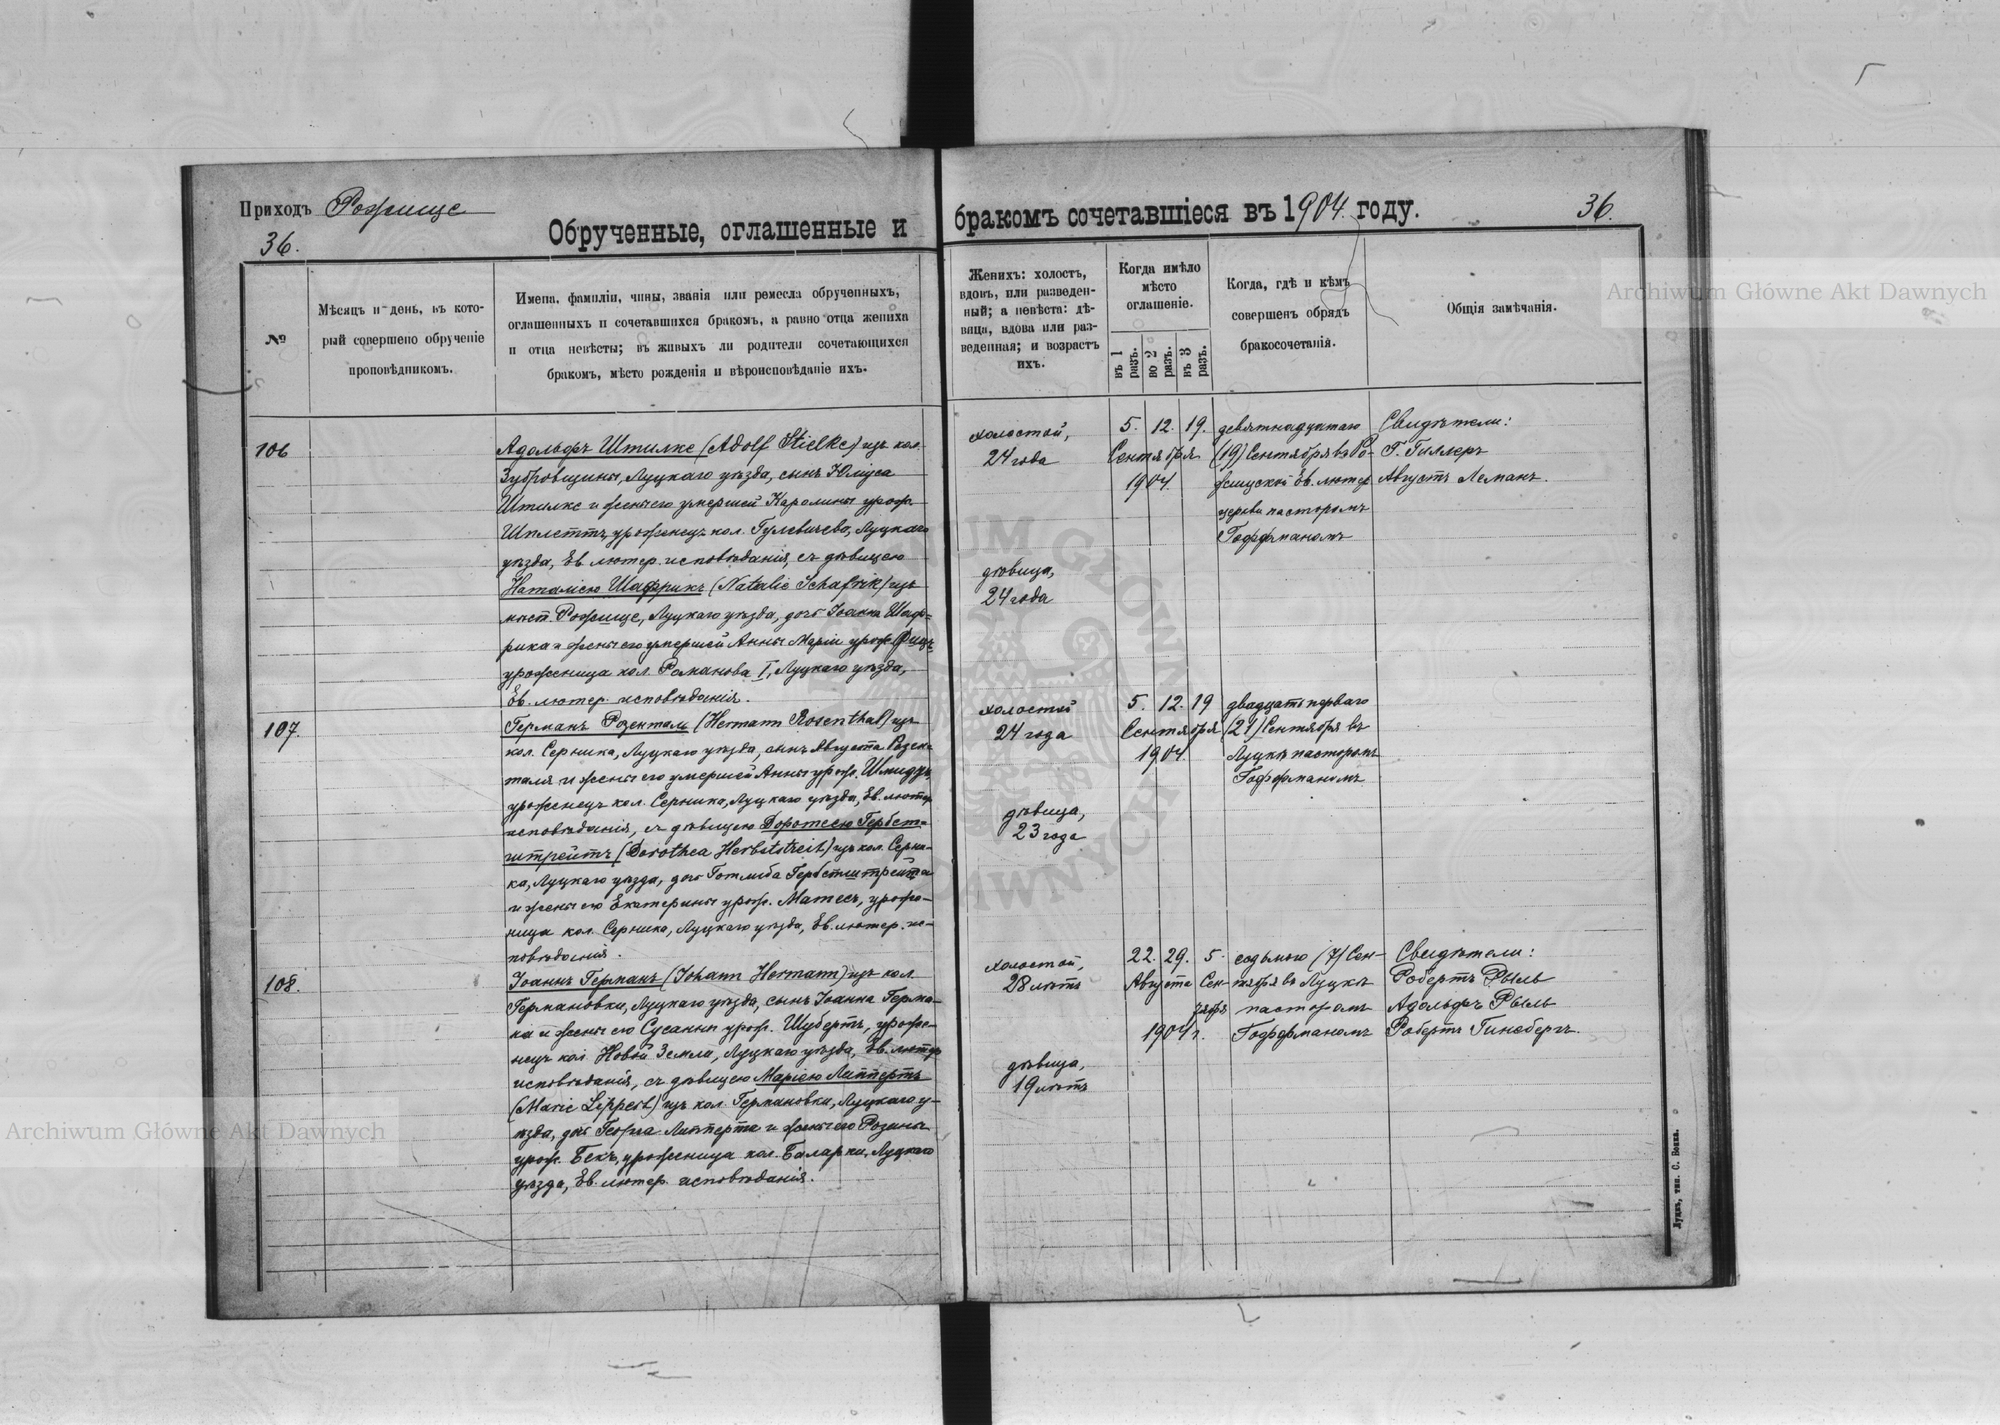 Приходъ Рожище
36.
Обрученные, оглашенные и бракомъ сочетавшіеся въ 1904 году.
36.
№
Мѣсяцъ и день, въ кото-
рый совершено обрученіе
проповѣдникомъ.
Имена, фамиліи, чины, званія или ремесла обрученныхъ,
оглашенныхъ и сочетавшихся бракомъ, а равно отца жениха
и отца невѣсты; въ живыхъ ли родители сочетающихся
бракомъ, мѣсто рожденія и вѣроисповѣданіе ихъ.
Женихъ: холостъ,
вдовъ, или разведен-
ный; а невѣста: дѣ-
вица, вдова или раз-
веденная; и возрастъ
ихъ.
Когда имѣло
мѣсто
оглашеніе.
въ 1 разъ.
во 2 разъ.
въ 3 разъ.
Когда, гдѣ и кѣмъ
совершенъ обрядъ
бракосочетанія.
Общія замѣчанія.
106
Адольфъ Штилке (Adolf Stielke) изъ кол.
Зубровщины, Луцкаго уѣзда, сынъ Юліуса
Штилке и жены его умершей Каролины урож.
Шплеттъ, уроженецъ кол. Гулевичево, Луцкаго
уѣзда, Ев. лютер. исповѣданія, съ дѣвицею
Наталіею Шафрикъ (Natalie Schafrik) изъ
мѣст. Рожище, Луцкаго уѣзда, дочь Іоанна Шаф-
рика и жены его умершей Анны Маріи урож.
уроженица кол. Романова I, Луцкаго уѣзда,
Ев. лютер. исповѣданія.
холостой,
24 года
дѣвица,
24 года
5. 12. 19.
Сентября
1904.
девятнадцатаго
(19) Сентября въ Ро-
жищской Ев. лютер
церкви пасторомъ
Гоффманомъ
Свидѣтели:
Г. Гиллеръ
Августъ Леманъ.
107.
Германъ Розенталь (Hermann Rosenthal) изъ
кол. Серника, Луцкаго уѣзда, сынъ Августа Розен-
таля и жены его умершей Анны урож. Шмидтъ,
уроженецъ кол. Серника, Луцкаго уѣзда, Ев. лютер
исповѣданія, съ дѣвицею Доротеею Гербст-
штрейтъ (Dorothea Herbststreit) изъ кол. Серни-
ка, Луцкаго уѣзда, дочь Готлиба Гербстштрейта
и жены его Екатерины урож. Матесъ, уроже-
ница кол. Серника, Луцкаго уѣзда, Ев. лютер. ис-
повѣданія.
холостой
24 года
дѣвица,
23 года
5. 12. 19
Сентября
1904.
двадцать перваго
(21) Сентября въ
Луцкѣ пасторомъ
Гоффманомъ
108.
Іоаннъ Германъ (Johann Hermann) изъ кол.
Германовки, Луцкаго уѣзда, сынъ Іоанна Герма-
на и жены его Сусанны урож. Шубертъ, уроже-
нецъ кол. Новой Земли, Луцкаго уѣзда, Ев. лютер
исповѣданія, съ дѣвицею Маріею Липпертъ
(Marie Lippert) изъ кол. Германовки, Луцкаго у-
ѣзда, дочь Георга Липперта и жены его Розины
урож. Бекъ, уроженица кол. Баларки, Луцкаго
уѣзда, Ев. лютер. исповѣданія.
холостой,
28 лѣтъ
дѣвица,
19 лѣтъ
22. 29. 5.
Августа Сен-
тября
1904 г.
седьмого (7) Сен-
тября въ Луцкѣ
пасторомъ
Гоффманомъ
Свидѣтели:
Робертъ Рыль
Адольфъ Рыль
Робертъ Гинсбергъ.
Archiwum Główne Akt Dawnych
Archiwum Główne Akt Dawnych